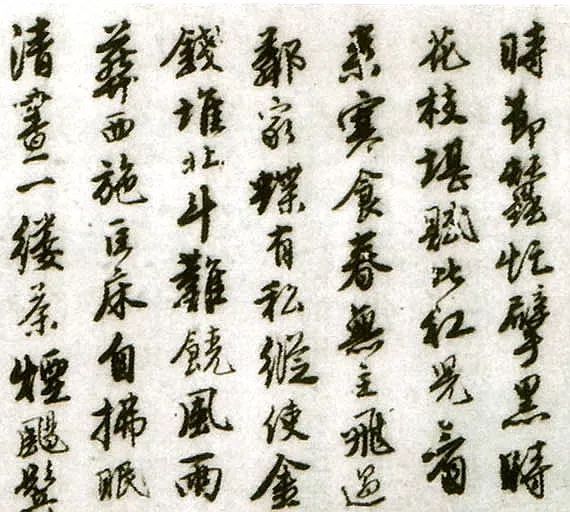 時節蠶忙擘黑時
花枝堪賦比紅兒看
來寒食春無主飛過
鄰家蝶有私縱使金
錢堆北斗難饒風雨
葬西施匡床自拂眠
清晝一縷茶煙颺鬢